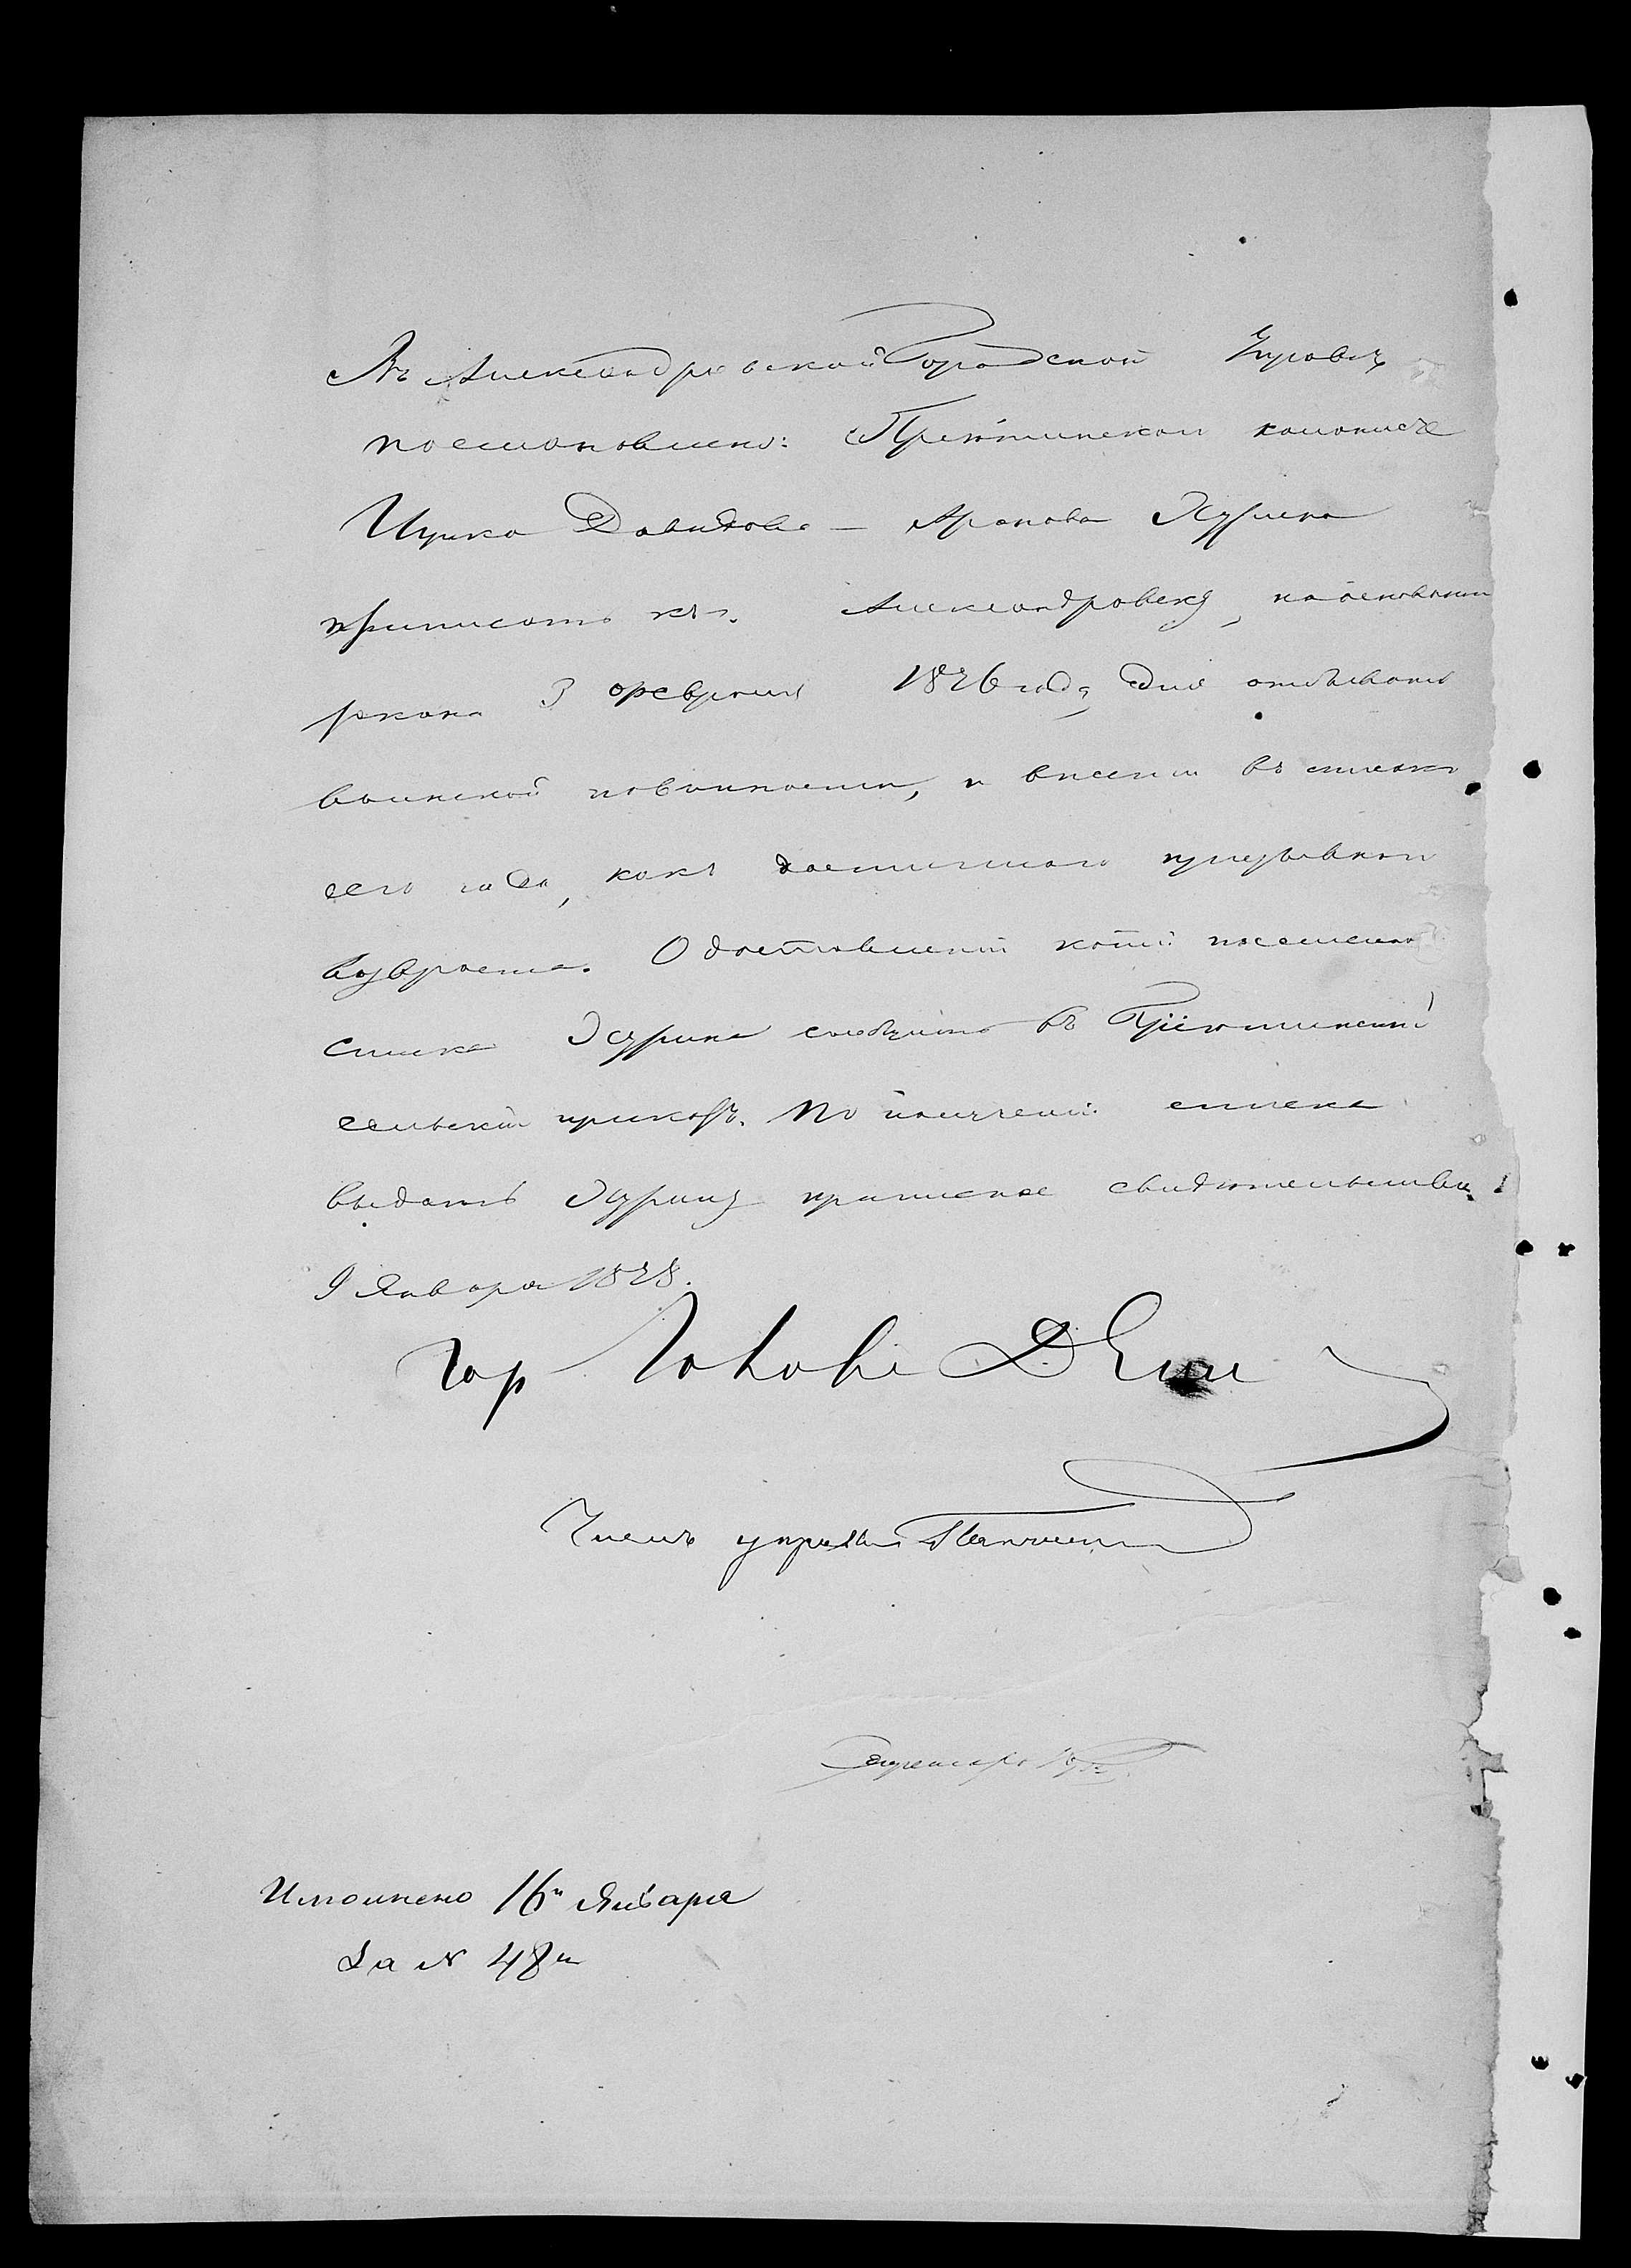 Въ Александровской Городской Управѣ
постановлено: колониста
Ицика Давидова – Аронова Эзрина
приписать къ г. Александровску, на основаніи
закона 3 февраля 1876 года, для отбыванія
воинской повинности, и внести въ списокъ
сего года, какъ достигшаго призывнаго
возраста. О доставленіи копіи посемейнаго
списка Эзрина сообщить въ
сельскій приказъ. По полученіи списка
выдать Эзрину приписное свидѣтельство.
9 Января 1878.
Гор Голова Д
Членъ управы
Секретарь
Исполнено 16го Января
За N 48м